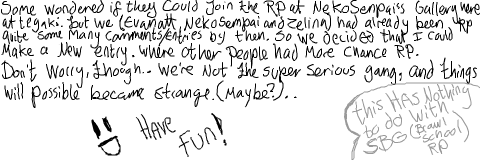 Some wondered if they could join the RP at NekoSenpai's Gallery here
at tegaki. but we (Evanatt, NekoSempai and Zelina) had already been RP
quite some many comments/entries by then. So we decided that I could
Make a New entry. where other People had More chance RP.
Don't Worry, though.. We're Not the super serious gang, and things
will possible became strange. (Maybe?)..
HAVE
Fun!
this HAS Nothing
to do with
SBG (Brawl
School)
RP